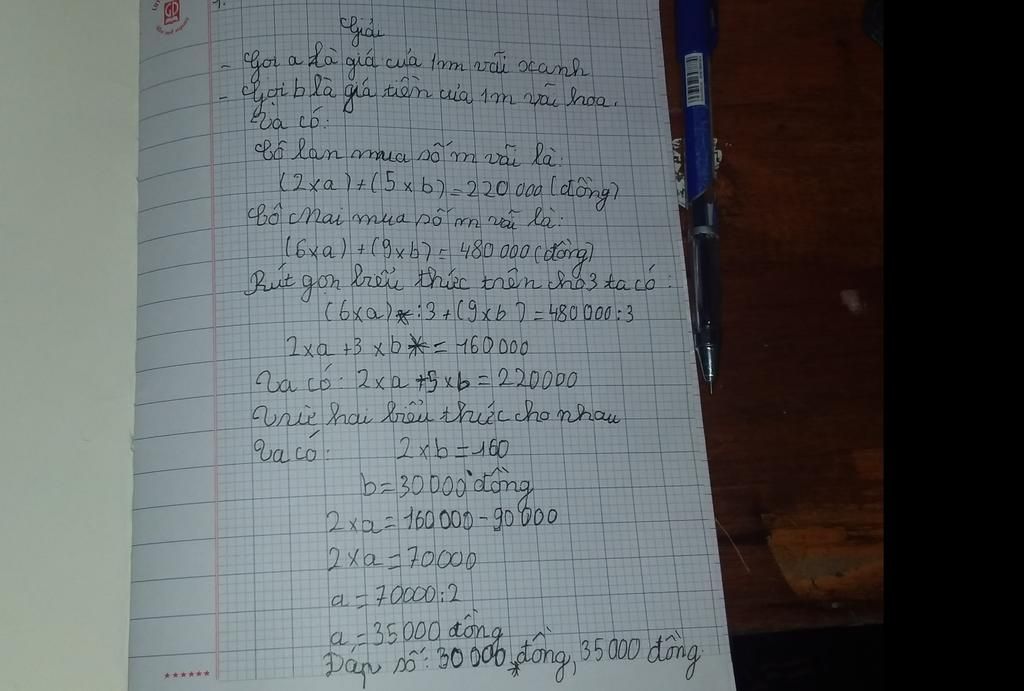 Giải
- Gọi a là giá của 1m vải xanh
- Gọi b là giá tiền của 1m vải hoa.
Ta có:
Cô Lan mua số m vải là:
(2xa)+(5xb)=220 000(đồng)
Cô Mai mua số m vải là:
(6xa)+(9xb)=480 000(đồng)
Rút gọn biểu thức trên cho 3 ta có:
(6xa):3+(9xb)=480 000:3
2xa+3xb=160000
Ta có: 2xa+5xb=220000
Trừ hai biểu thức cho nhau
Ta có: 2xb=160
b=30000 đồng
2xa=160000-90000
2xa=70000
a=70000:2
a=35000 đồng
Đáp số: 30000 đồng, 35000 đồng